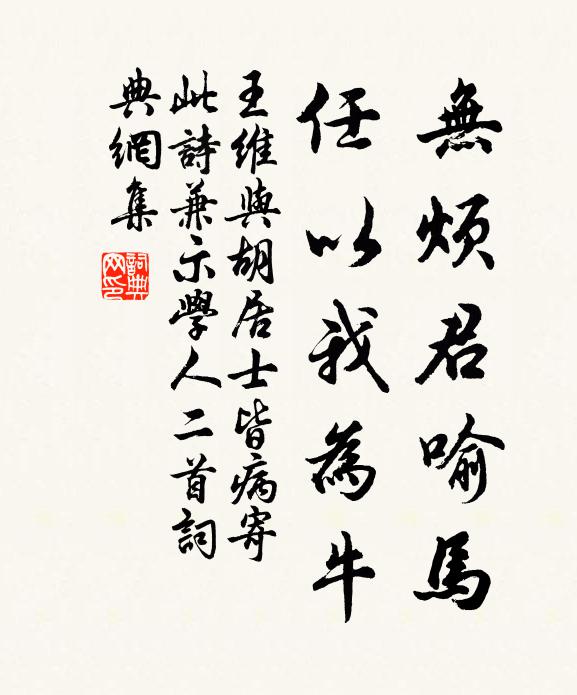 無煩君喻馬
任以我為牛
王維與胡居士皆病寄
此詩兼示學人二首詞
典網集
詞典
网印